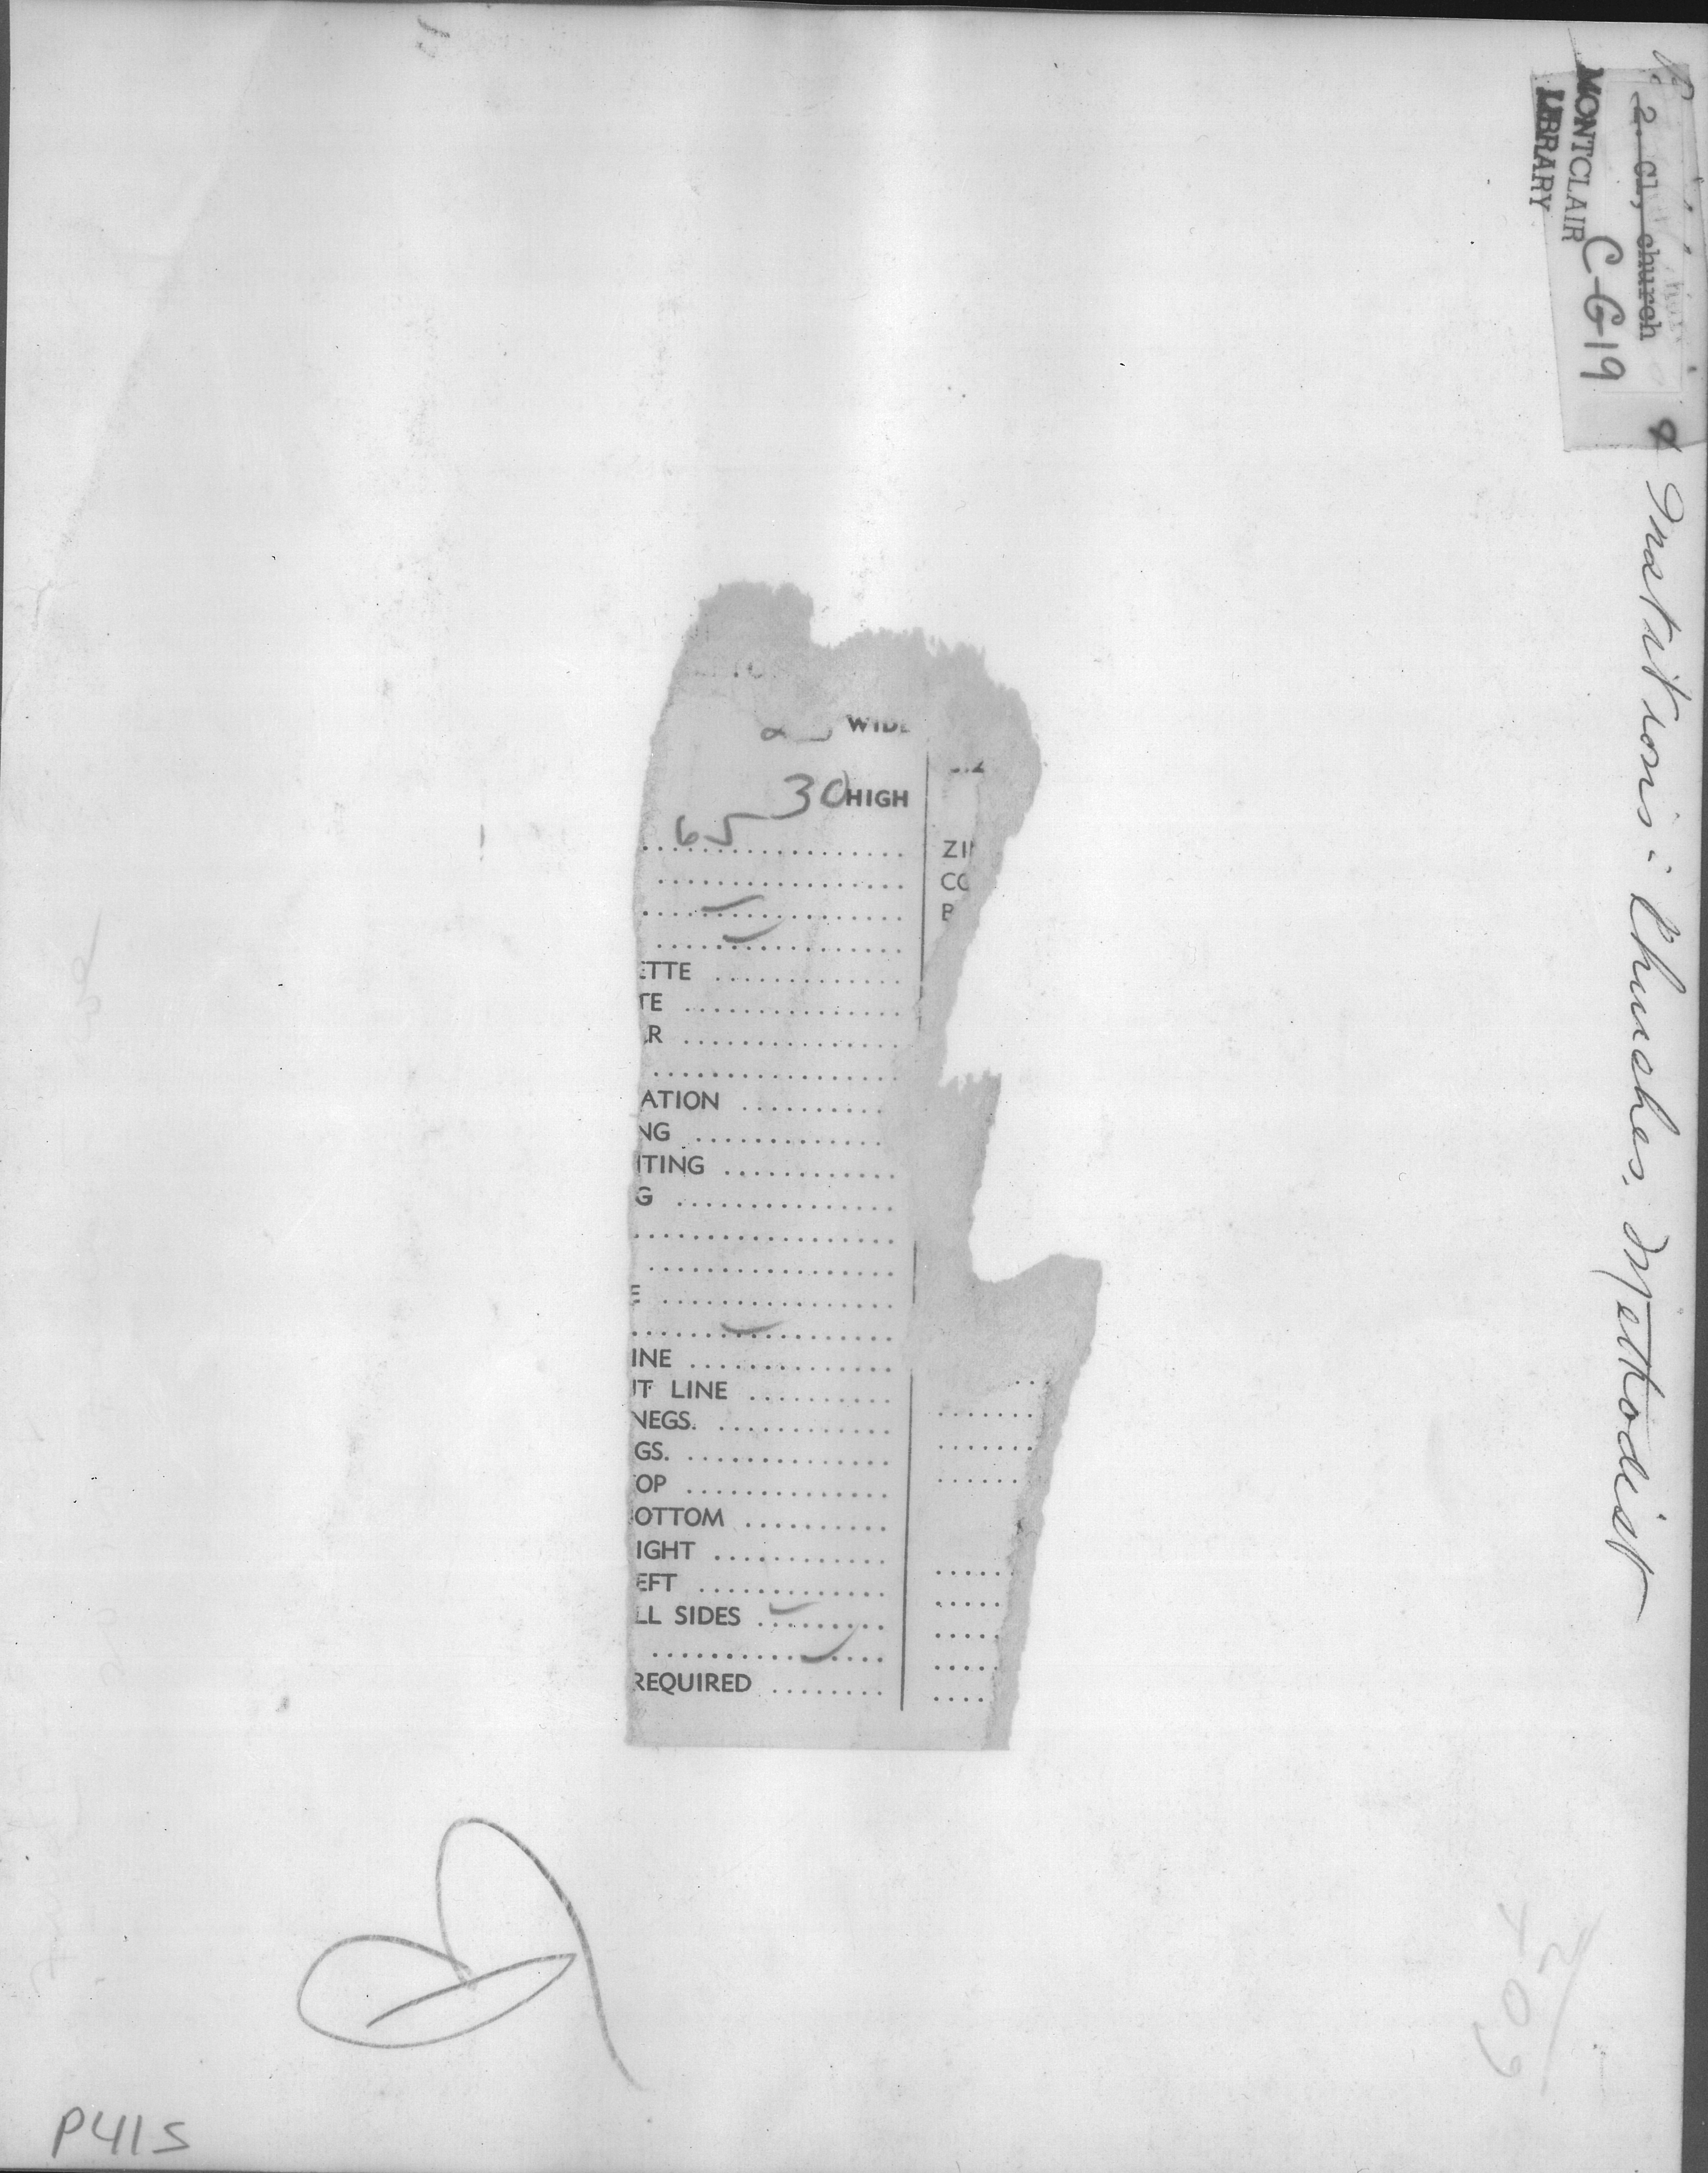 2. Cl, church
C-G19
MONTCLAIR
LIBRARY
& Institutions: Churches. Methodist
WIDE
30 HIGH
65
ZIN
CO
B
ETTE
TE
AR
ATION
NG
ITING
G
E
INE
IT LINE
NEGS.
GS.
OP
OTTOM
IGHT
EFT
LL SIDES
REQUIRED
P41S